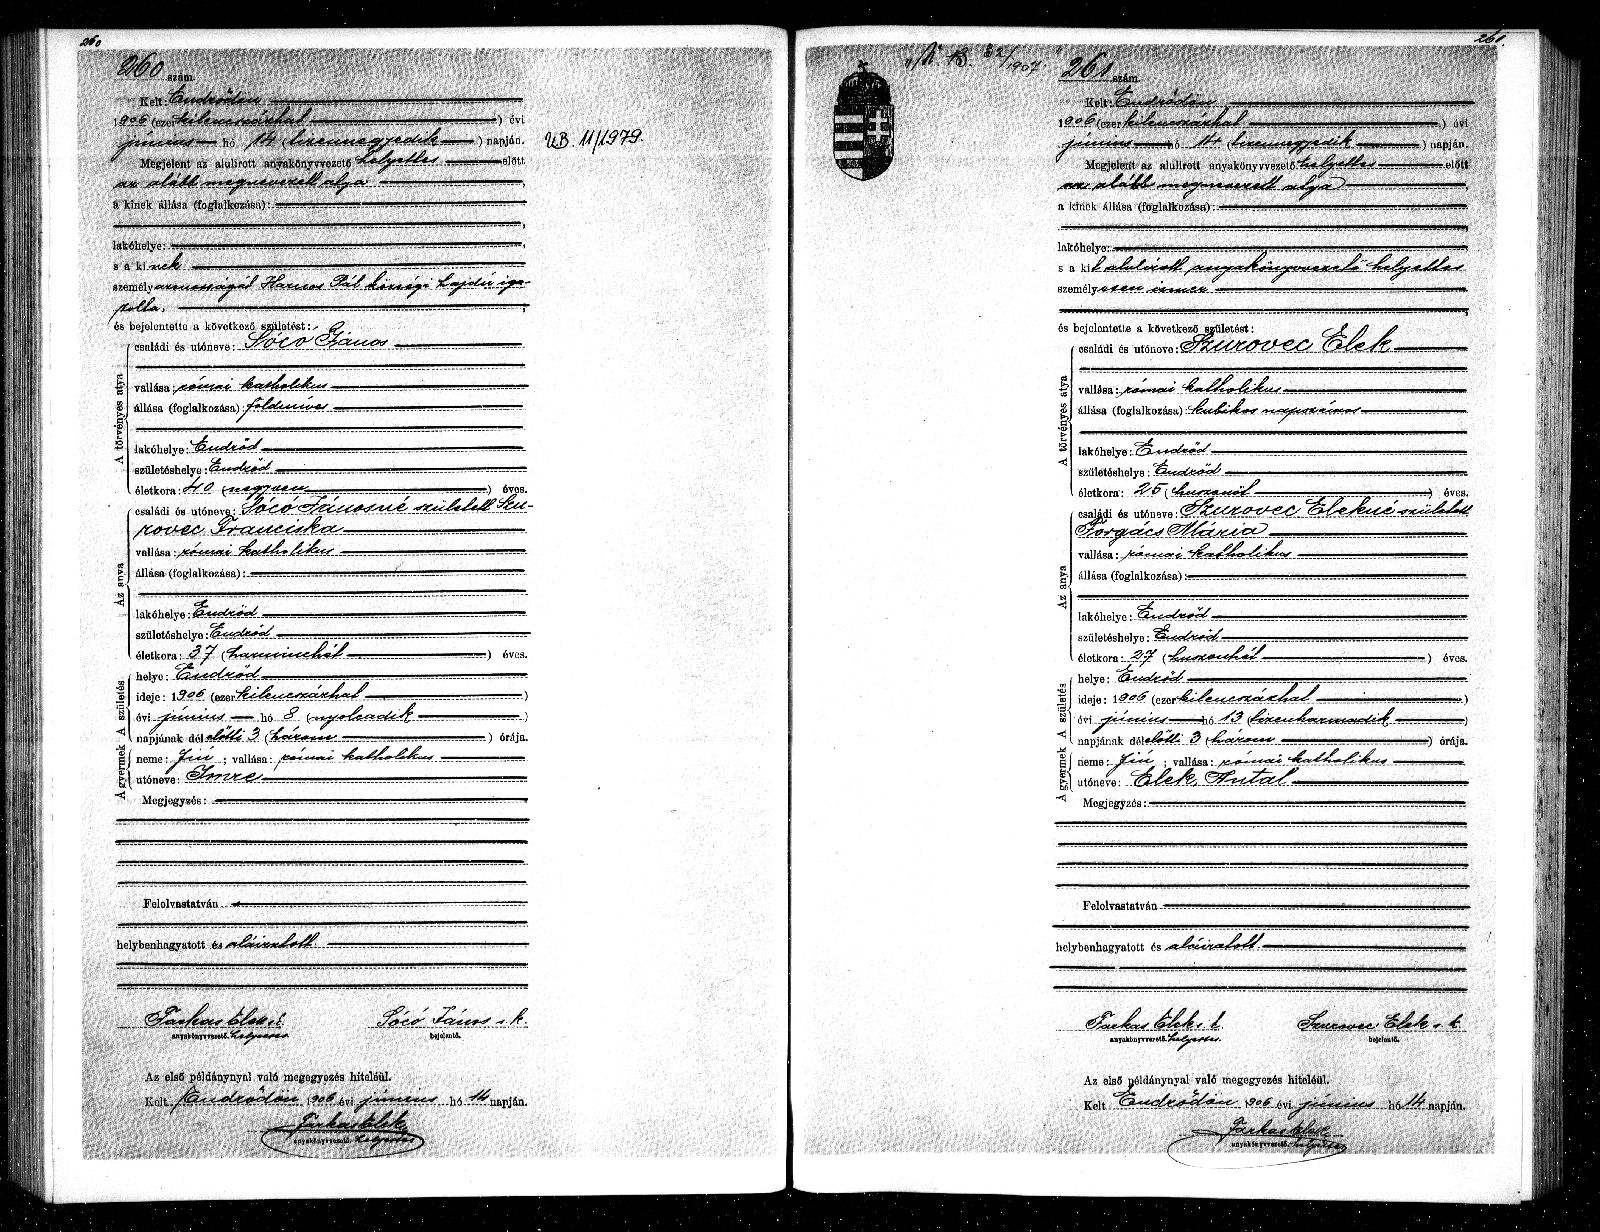 260
260 szám.
Kelt: Endrődön
1906 (ezerkilencszázhat ) évi
június hó 14 (tizennegyedik ) napján.
UB. 11/1979.
Megjelent az alulirott anyakönyvvezető helyettes előtt
az alább megnevezett atya
a kinek állása (foglalkozása):
lakóhelye:
s a kinek
személyazonosságát Harcos Pál községi hajdú iga-
zolta.
és bejelentette a következő születést:
A törvényes atya
családi és utóneve: Sóczó János
vallása: római katholikus
állása (foglalkozása): földmíves
lakóhelye: Endrőd
születéshelye: Endrőd
életkora: 40 (negyven ) éves.
Az anya
családi és utóneve: Sóczó Jánosné született Szu-
rovec Franciska
vallása: római katholikus
állása (foglalkozása):
lakóhelye: Endrőd
születéshelye: Endrőd
életkora: 37 (harminchét ) éves.
A születés
helye: Endrőd
ideje: 1906 (ezerkilencszázhat )
évi június hó 8 (nyolcadik )
napjának délelőtti 3 (három ) órája.
A gyermek
neme: fiú ; vallása: római katholikus
utóneve: Imre
Megjegyzés:
Felolvastatván
helybenhagyatott és aláiratott
Farkas Elek s. k. Sóczó János s. k.
anyakönyvvezető. helyettes bejelentő.
Az első példánynyal való megegyezés hiteléül.
Kelt Endrődön 1906 évi június hó 14 napján.
Farkas Elek
anyakönyvvezető. helyettes
261.
32/1907.
261 szám.
Kelt: Endrődön
1906 (ezerkilencszázhat ) évi
június hó 14 (tizennegyedik ) napján.
Megjelent az alulirott anyakönyvvezető helyettes előtt
az alább megnevezett atya
a kinek állása (foglalkozása):
lakóhelye:
s a kit alulírott anyakönyvvezető helyettes
személyesen ismer
és bejelentette a következő születést:
A törvényes atya
családi és utóneve: Szurovec Elek
vallása: római katholikus
állása (foglalkozása): kubikos napszámos
lakóhelye: Endrőd
születéshelye: Endrőd
életkora: 25 (huszonöt ) éves.
Az anya
családi és utóneve: Szurovec Elekné született
Forgács Mária
vallása: római katholikus
állása (foglalkozása):
lakóhelye: Endrőd
születéshelye: Endrőd
életkora: 27 (huszonhét ) éves.
A születés
helye: Endrőd
ideje: 1906 (ezerkilencszázhat )
évi június hó 13 (tizenharmadik )
napjának délelőtti 3 (három ) órája.
A gyermek
neme: fiú ; vallása: római katholikus
utóneve: Elek, Antal
Megjegyzés:
Felolvastatván
helybenhagyatott és aláiratott
Farkas Elek s. k. Szurovec Elek s. k.
anyakönyvvezető. helyettes. bejelentő.
Az első példánynyal való megegyezés hiteléül.
Kelt Endrődön 1906 évi június hó 14 napján.
Farkas Elek
anyakönyvvezető. helyettes